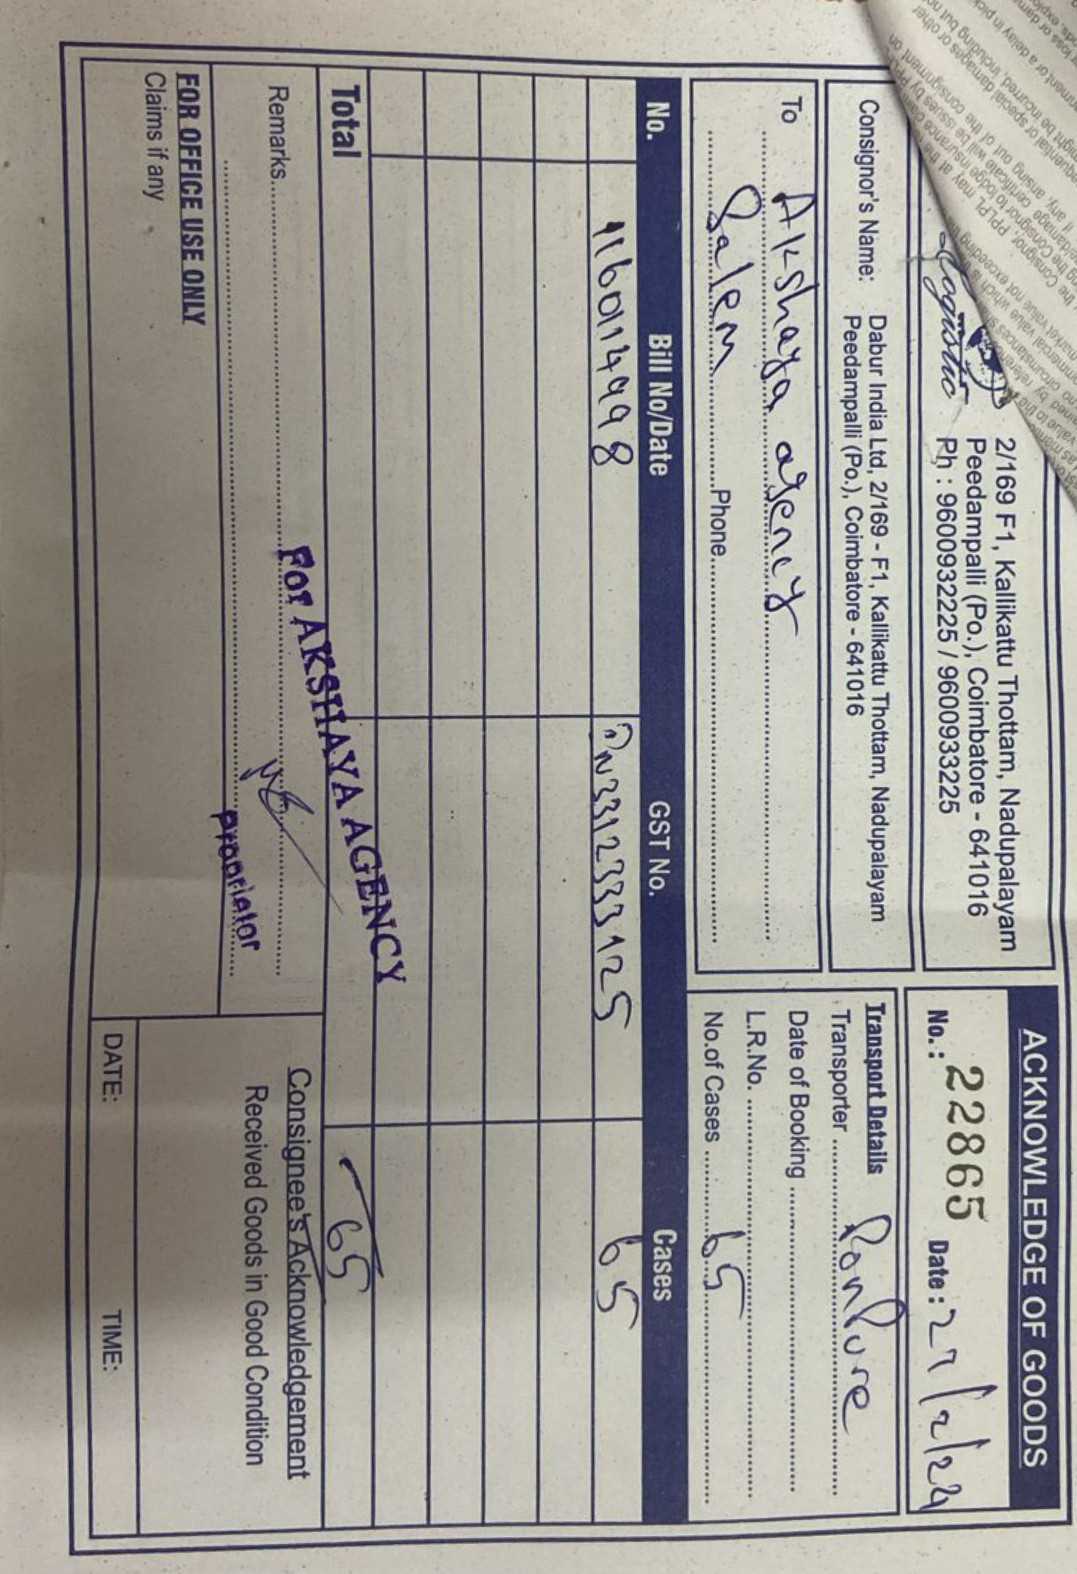 Logistic
2/169 F1, Kallikattu Thottam, Nadupalayam
Peedampalli (Po.), Coimbatore - 641016
Ph : 9600932225 / 9600933225
ACKNOWLEDGE OF GOODS
No.: 22865 Date: 27/2/24
Consignor's Name: Dabur India Ltd, 2/169 - F1, Kallikattu Thottam, Nadupalayam
Peedampalli (Po.), Coimbatore - 641016
To Akshaya agency
Salem Phone
Transport Details
Transporter
Date of Booking
L.R.No.
No.of Cases 65
No. Bill No/Date GST No. Cases
1160114998 65
Total 65
For AKSHAYA AGENCY
Remarks
Proprietor
Consignee's Acknowledgement
Received Goods in Good Condition
FOR OFFICE USE ONLY
Claims if any
DATE: TIME: